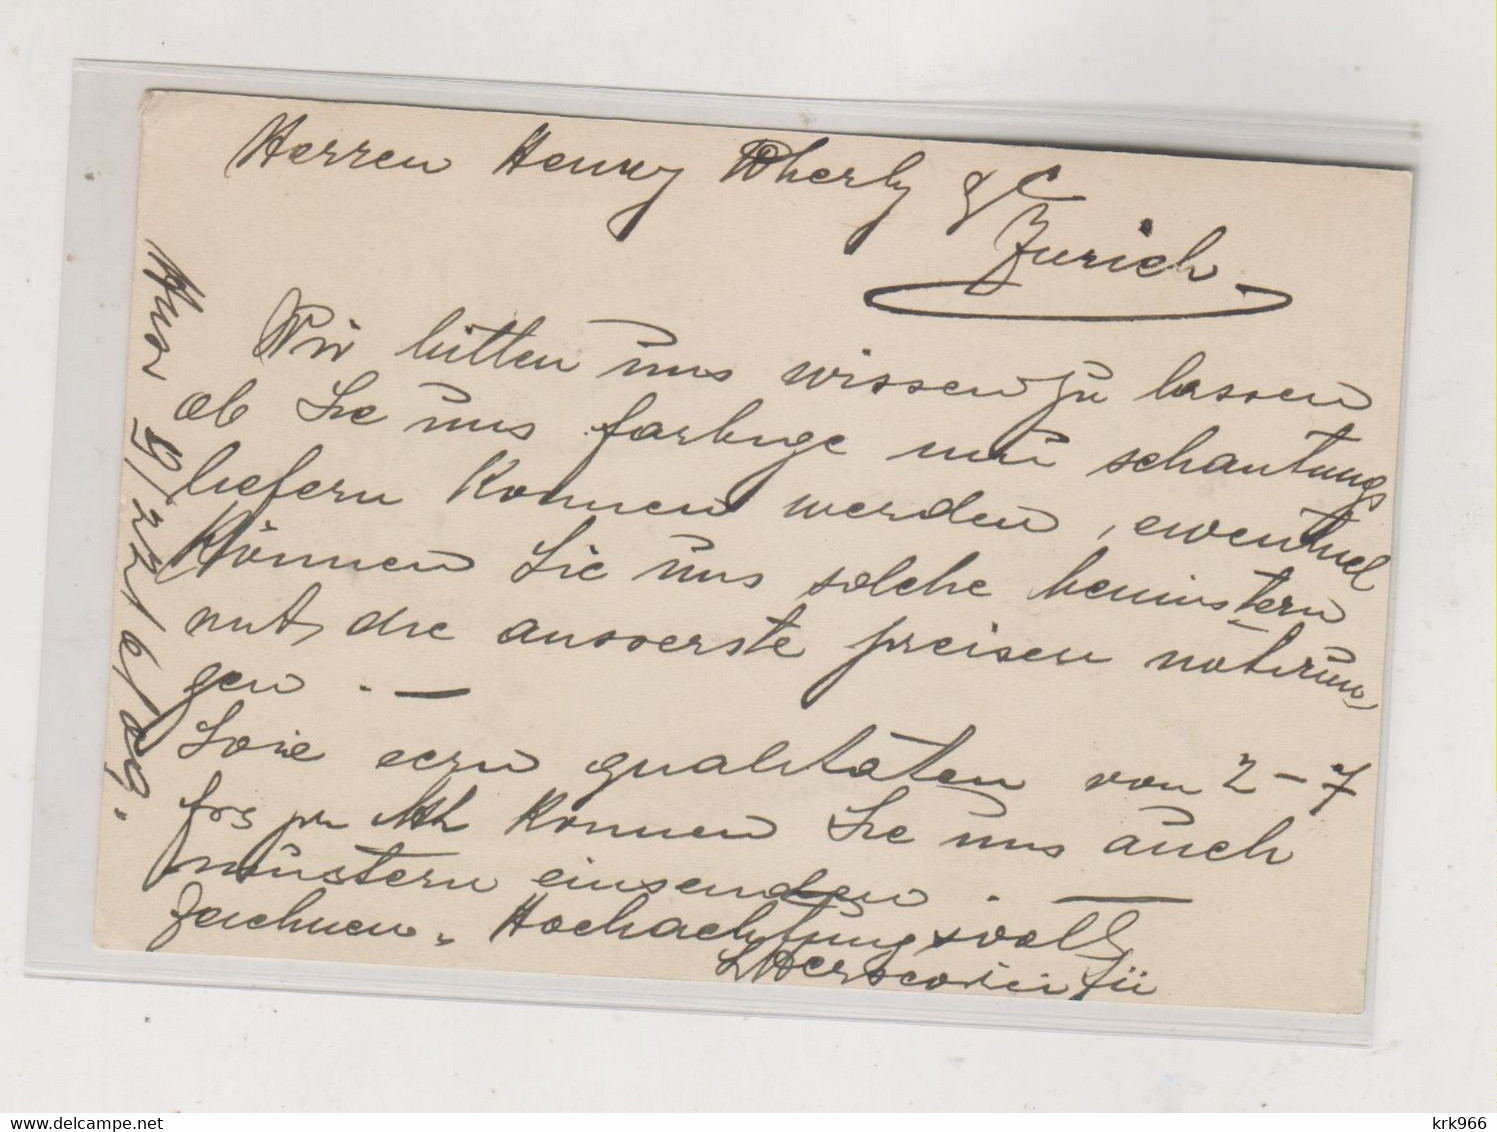 Herren Henry &C
Zurich
Wir bitten uns wissen zu lassen
ob Sie uns farbige uni schantungs
liefern konnen werden, eventuel
können Sie uns solche bemustern
mit die ausserste preisen notirun
gen. —
Sowie ecru qualitäten von 2-7
frs pr konnen Sie uns auch
müstern einsenden. —
Zeichnen. Hochachtungsvoll
9/22/6/09.
krk966